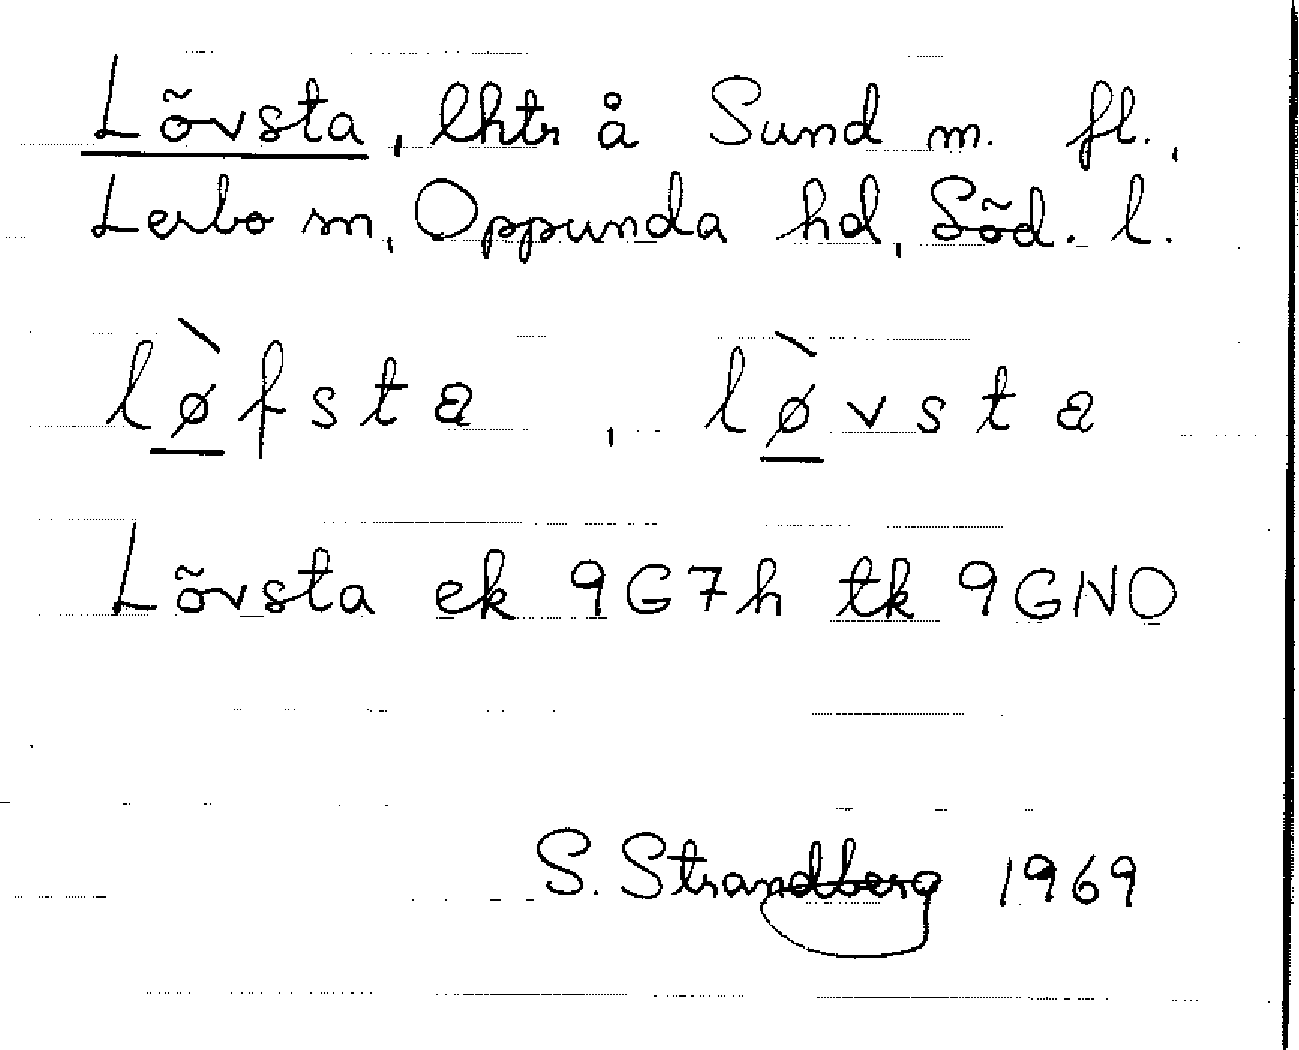 Lõvsta, lhtr å Sund m. fl.,
Lerbo sn, Oppunda hd, Sõd. l.
lø̀fsta, lø̀vsta
Lõvsta ek 9G7h tk 9GNO
S. Strandberg 1969